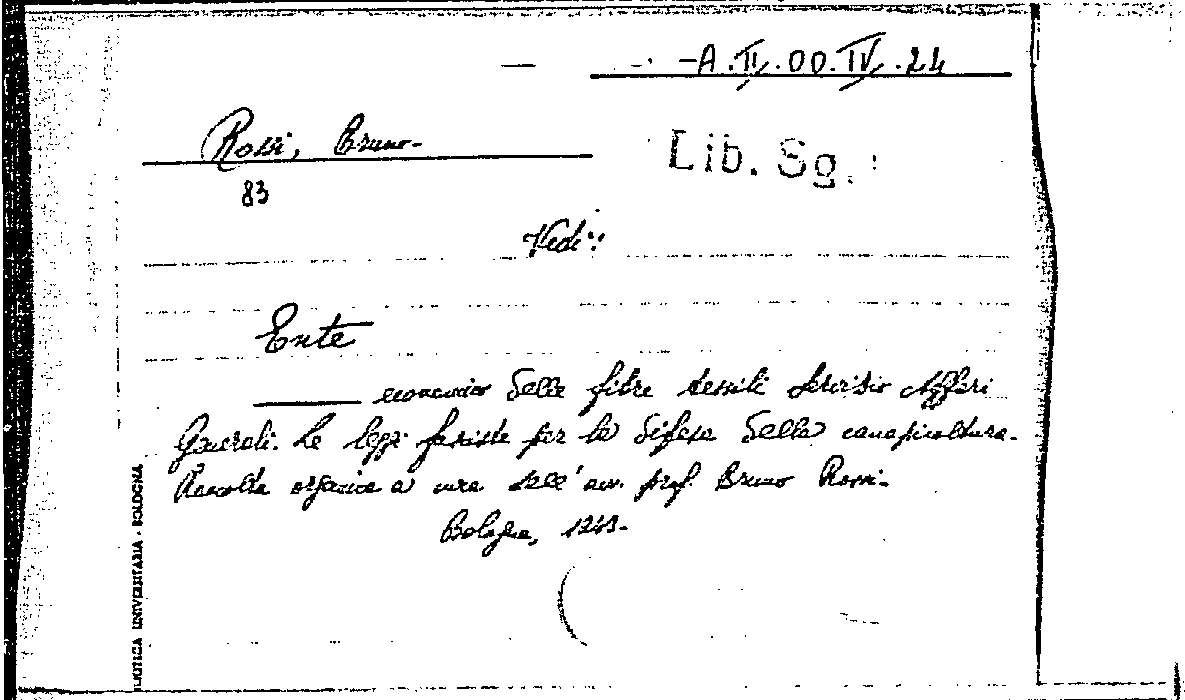 A.II.00.IV.24
Rossi, Bruno-
Lib. Sg.
83
Vedi:
Ente
economico delle fibre tessili Servizio Affari
Generali. Le leggi fasciste per la difesa della canapicoltura.
Raccolta organica a cura dell'avv. prof. Bruno Rossi-
Bologna,
BIBLIOTECA UNIVERSITARIA - BOLOGNA